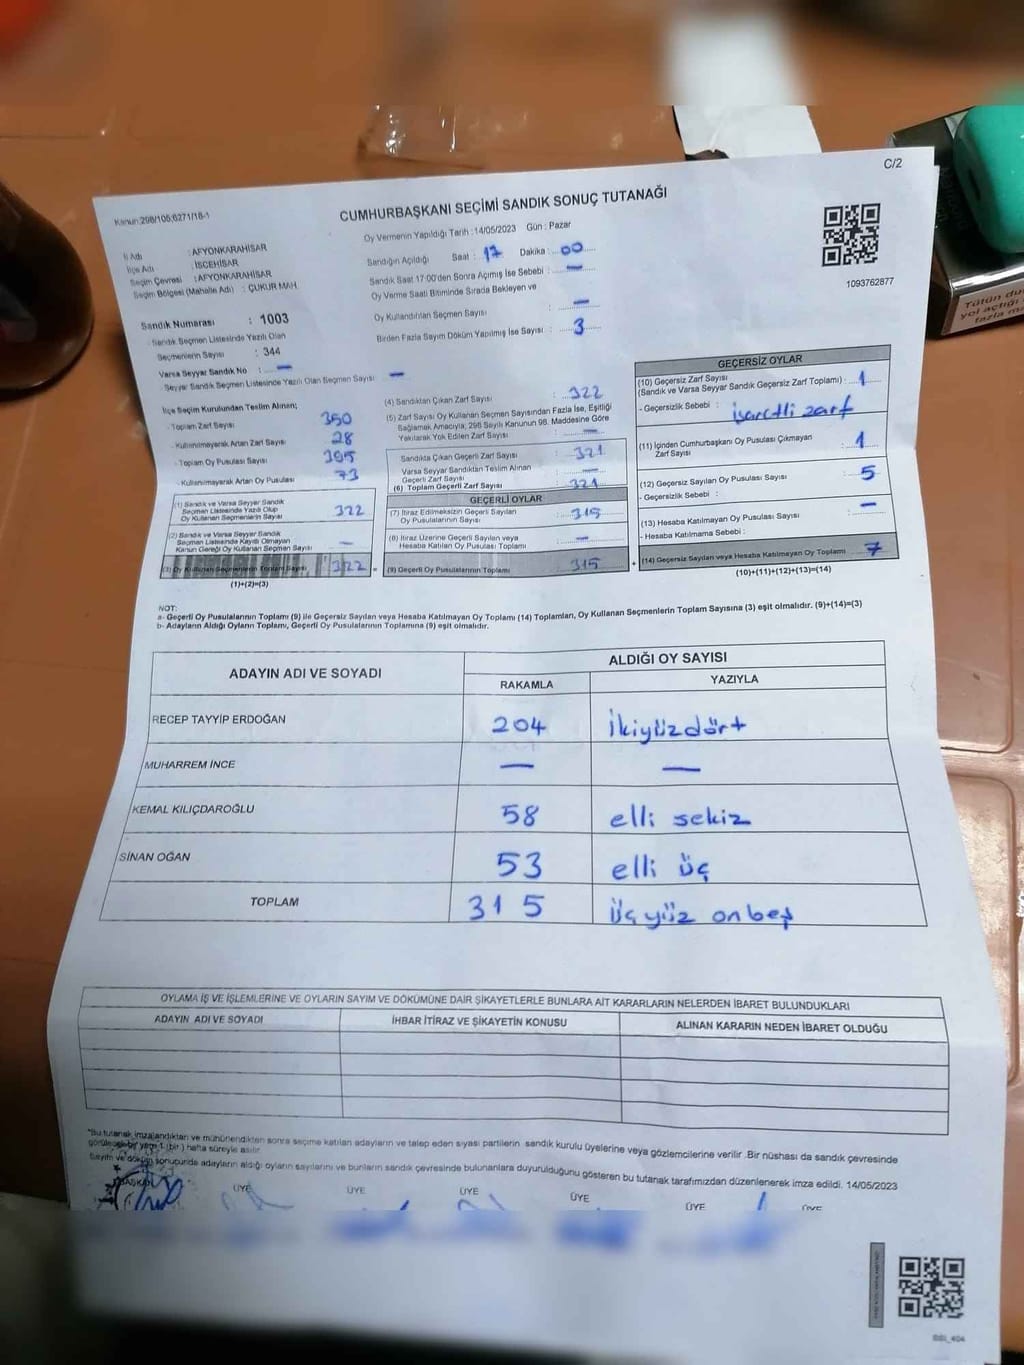 C/2
Kanun:298/105;6271/18-1
CUMHURBAŞKANI SEÇİMİ SANDIK SONUÇ TUTANAĞI
İl Adı : AFYONKARAHİSAR
İlçe Adı : İSCEHİSAR
Seçim Çevresi : AFYONKARAHİSAR
Seçim Bölgesi (Mahalle Adı) : ÇUKUR MAH.
Sandık Numarası : 1003
Sandık Seçmen Listesinde Yazılı Olan
Seçmenlerin Sayısı : 344
Varsa Seyyar Sandık No : —
Seyyar Sandık Seçmen Listesinde Yazılı Olan Seçmen Sayısı —
Oy Vermenin Yapıldığı Tarih : 14/05/2023 Gün : Pazar
Sandığın Açıldığı Saat : 17 Dakika : 00
Sandık Saat 17:00'den Sonra Açımış İse Sebebi : —
Oy Verme Saati Bitiminde Sırada Bekleyen ve
Oy Kullandırılan Seçmen Sayısı : —
Birden Fazla Sayım Döküm Yapılmış İse Sayısı : 3
1093762877
İlçe Seçim Kurulundan Teslim Alınan;
- Toplam Zarf Sayısı 350
- Kullanılmayarak Artan Zarf Sayısı 28
- Toplam Oy Pusulası Sayısı 395
- Kullanılmayarak Artan Oy Pusulası 73
(1) Sandık ve Varsa Seyyar Sandık
Seçmen Listesinde Yazılı Olup
Oy Kullanan Seçmenlerin Sayısı 322
(2) Sandık ve Varsa Seyyar Sandık
Seçmen Listesinde Kayıtlı Olmayan
Kanun Gereği Oy Kullanan Seçmen Sayısı —
(3) Oy Kullanan Seçmenlerin Toplam Sayısı 322
(1)+(2)=(3)
(4) Sandıktan Çıkan Zarf Sayısı : 322
(5) Zarf Sayısı Oy Kullanan Seçmen Sayısından Fazla İse, Eşitliği
Sağlamak Amacıyla; 298 Sayılı Kanunun 98. Maddesine Göre
Yakılarak Yok Edilen Zarf Sayısı : —
Sandıkta Çıkan Geçerli Zarf Sayısı : 321
Varsa Seyyar Sandıktan Teslim Alınan
Geçerli Zarf Sayısı : —
(6) Toplam Geçerli Zarf Sayısı : 321
GEÇERLİ OYLAR
(7) İtiraz Edilmeksizin Geçerli Sayılan
Oy Pusulalarının Sayısı : 315
(8) İtiraz Üzerine Geçerli Sayılan veya
Hesaba Katılan Oy Pusulası Toplamı : —
(9) Geçerli Oy Pusulalarının Toplamı 315
GEÇERSİZ OYLAR
(10) Geçersiz Zarf Sayısı
(Sandık ve Varsa Seyyar Sandık Geçersiz Zarf Toplamı) : 1
- Geçersizlik Sebebi : işaretli zarf
(11) İçinden Cumhurbaşkanı Oy Pusulası Çıkmayan
Zarf Sayısı : 1
(12) Geçersiz Sayılan Oy Pusulası Sayısı : 5
- Geçersizlik Sebebi :
(13) Hesaba Katılmayan Oy Pusulası Sayısı : —
- Hesaba Katılmama Sebebi :
(14) Geçersiz Sayılan veya Hesaba Katılmayan Oy Toplamı 7
(10)+(11)+(12)+(13)=(14)
NOT:
a- Geçerli Oy Pusulalarının Toplamı (9) ile Geçersiz Sayılan veya Hesaba Katılmayan Oy Toplamı (14) Toplamları, Oy Kullanan Seçmenlerin Toplam Sayısına (3) eşit olmalıdır. (9)+(14)=(3)
b- Adayların Aldığı Oyların Toplamı, Geçerli Oy Pusulalarının Toplamına (9) eşit olmalıdır.
ADAYIN ADI VE SOYADI ALDIĞI OY SAYISI
RAKAMLA YAZIYLA
RECEP TAYYİP ERDOĞAN 204 İkiyüzdört
MUHARREM İNCE — —
KEMAL KILIÇDAROĞLU 58 elli sekiz
SİNAN OĞAN 53 elli üç
TOPLAM 315 üçyüz onbeş
OYLAMA İŞ VE İŞLEMLERİNE VE OYLARIN SAYIM VE DÖKÜMÜNE DAİR ŞİKAYETLERLE BUNLARA AİT KARARLARIN NELERDEN İBARET BULUNDUKLARI
ADAYIN ADI VE SOYADI İHBAR İTİRAZ VE ŞİKAYETİN KONUSU ALINAN KARARIN NEDEN İBARET OLDUĞU
"Bu tutanak imzalandıktan ve mühürlendikten sonra seçime katılan adayların ve talep eden siyasi partilerin sandık kurulu üyelerine veya gözlemcilerine verilir .Bir nüshası da sandık çevresinde
görülecek bir yere 1 (bir ) hafta süreyle asılır.
Sayım ve döküm sonucunda adayların aldığı oyların sayılarını ve bunların sandık çevresinde bulunanlara duyurulduğunu gösteren bu tutanak tarafımızdan düzenlenerek imza edildi. 14/05/2023
BAŞKAN ÜYE ÜYE ÜYE ÜYE ÜYE ÜYE